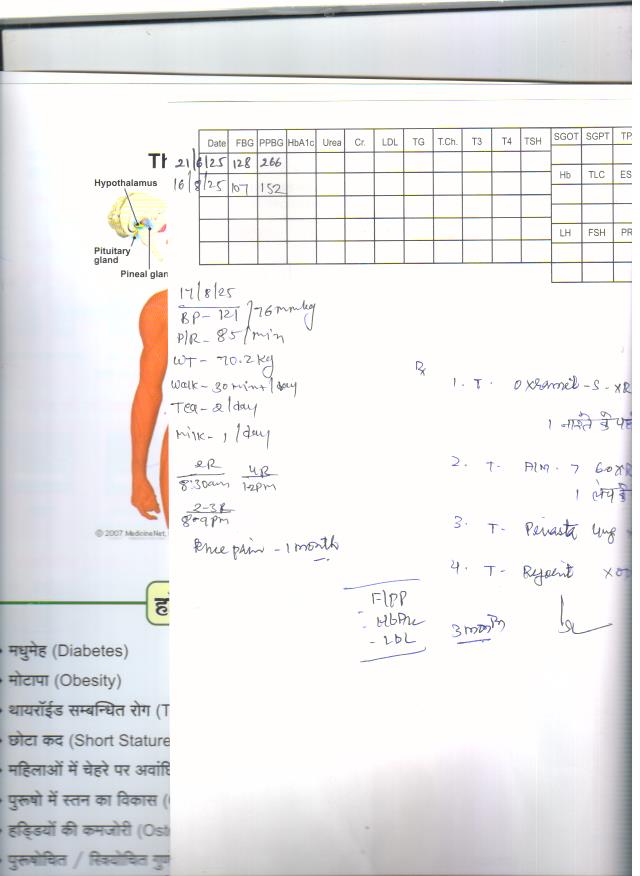 Date FBG PPBG HbA1c Urea Cr. LDL TG T.Ch. T3 T4 TSH SGOT SGPT TP
21/6/25 128 266
Hb TLC ES
16/8/25 107 152
LH FSH PR
Th
Hypothalamus
Pituitary
gland
Pineal glan
17/8/25
BP - 121/76 mmHg
P/R - 85/min
WT - 70.2 kg
Walk - 30 mint/day
Tea - 2/day
Milk - 1/day
2R 4R
8:30am 12pm
2-3R
8-9pm
Knee pain - 1 month
Rx
1. T. -S-XR
1 नाश्ते के
2. T. 60
1 लंच के
3. T-
4. T-
F/PP
- HbA1c
- LDL
3 month
© 2007 MedicineNet,
मधुमेह (Diabetes)
मोटापा (Obesity)
थायरॉईड सम्बन्धित रोग (T
छोटा कद (Short Stature
महिलाओं में चेहरे पर अवांछि
पुरूषो में स्तन का विकास (
हड्डियों की कमजोरी (Ost
पुरूषोचित / स्त्रियोचित गुण